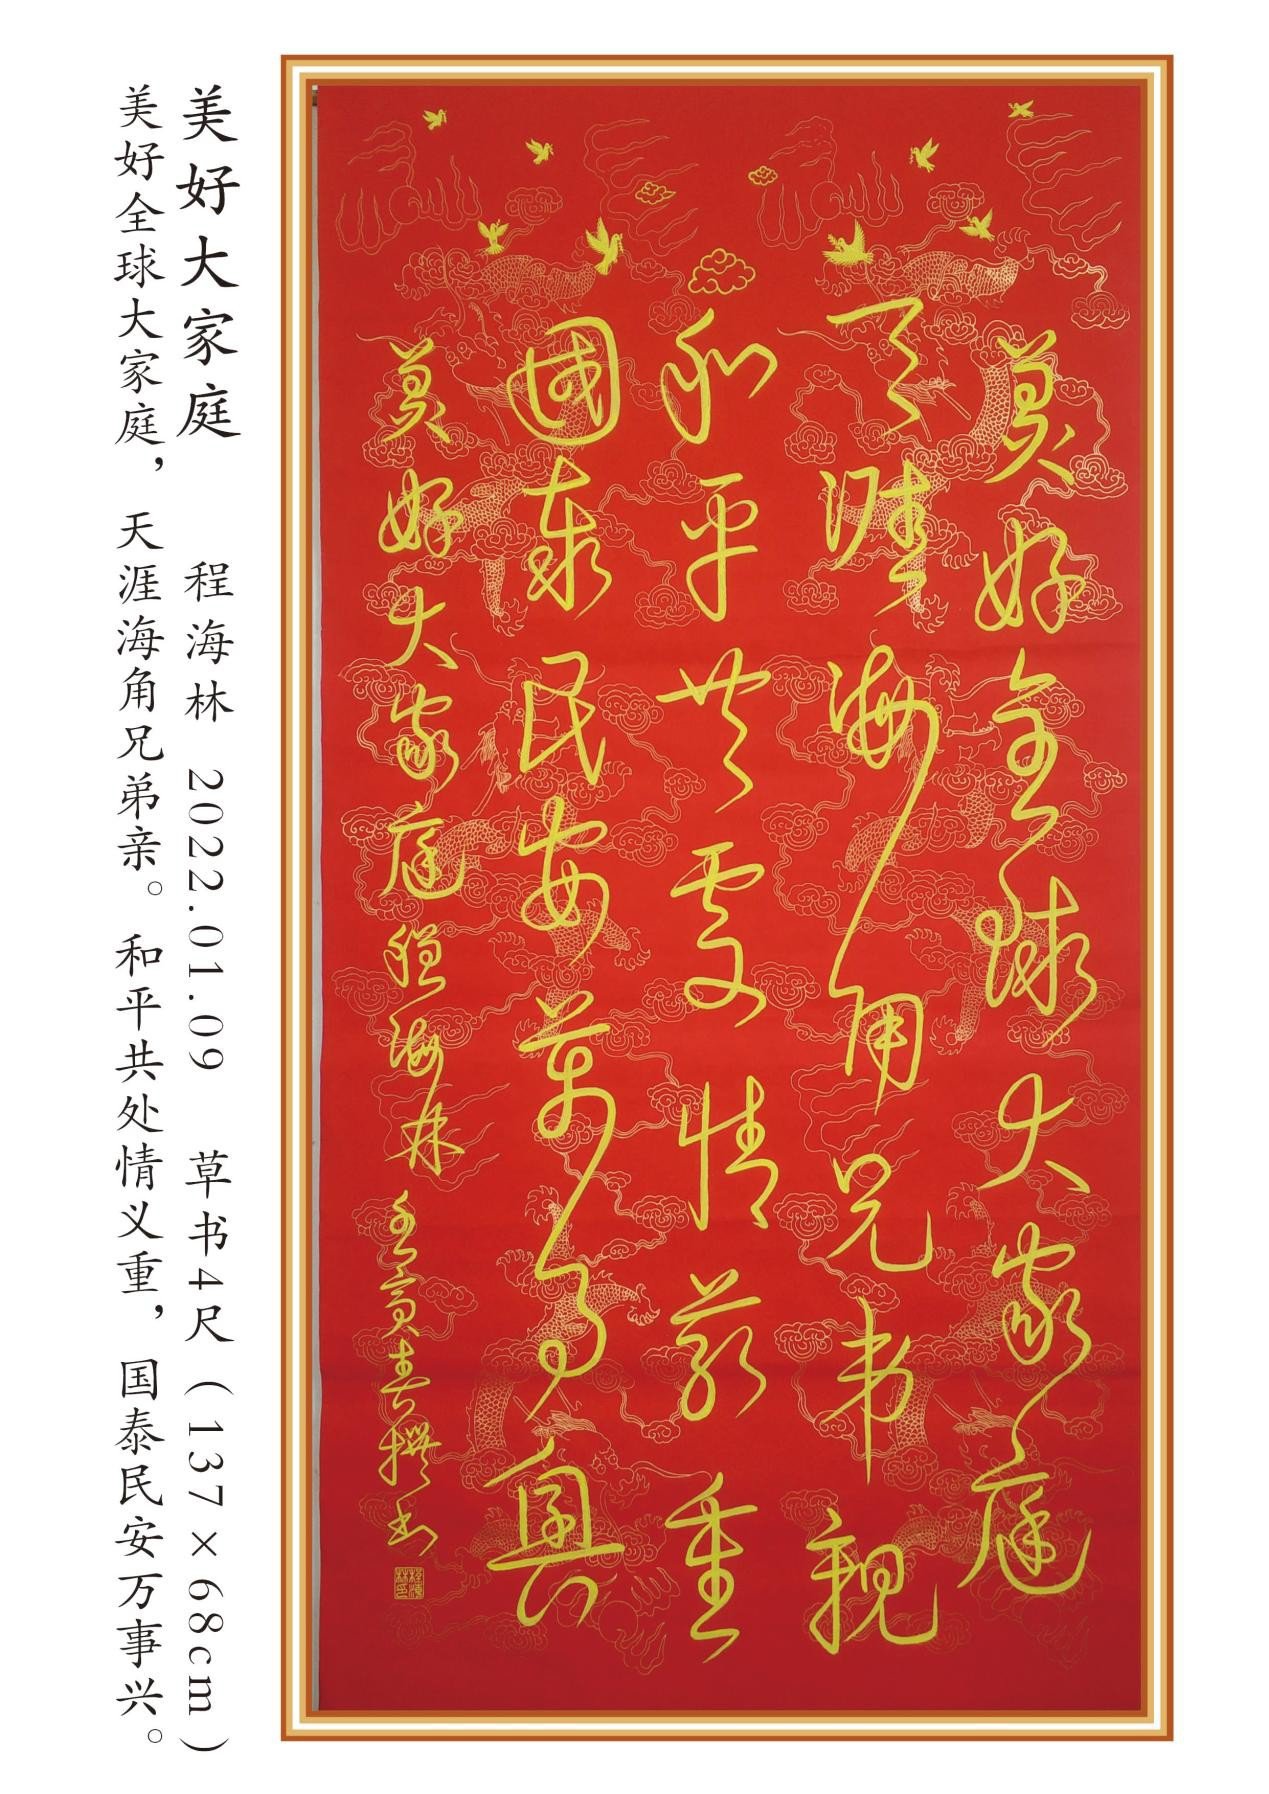 美好全球大家庭
天涯海角兄弟親
和平共處情義重
國泰民安萬事興
美好大家庭 程海林 壬寅春撰书
美好大家庭 程海林 2022.01.09 草书4尺(137×68cm)
美好全球大家庭，天涯海角兄弟亲。和平共处情义重，国泰民安万事兴。